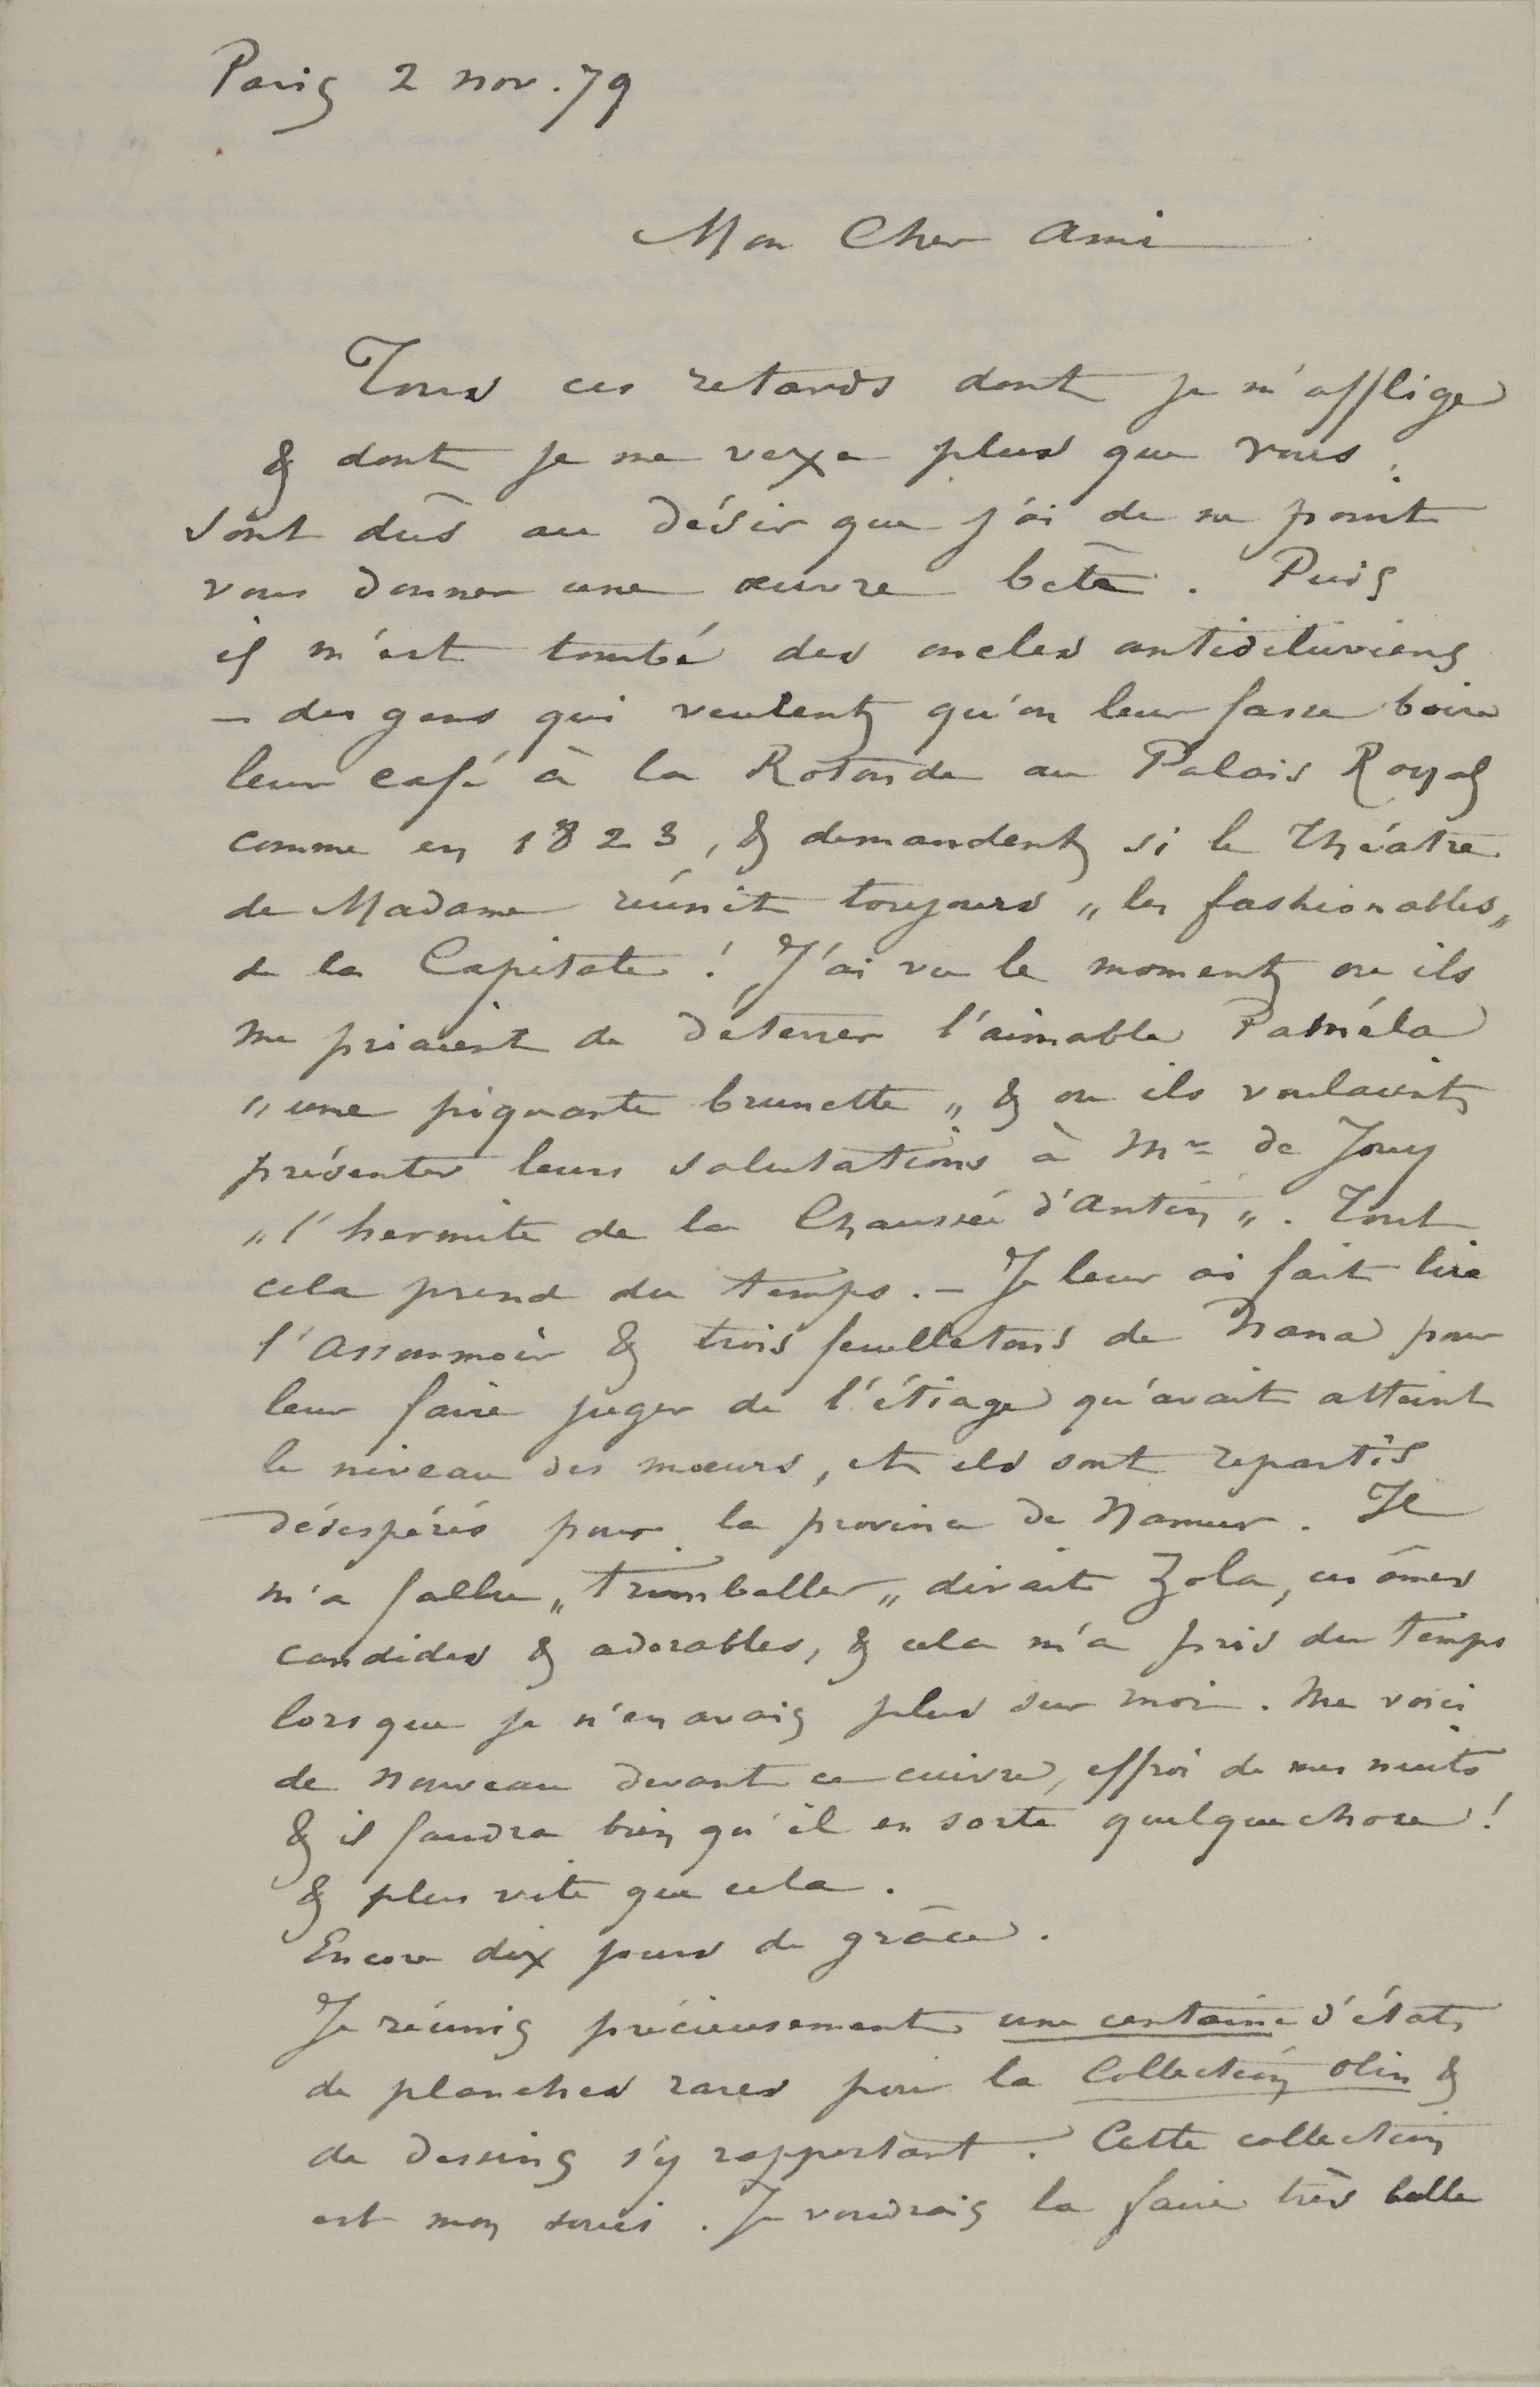 Paris 2 nov. 79
Mon Cher Ami
Tous ces retards dont je m'afflige
& dont je me vexe plus que vous,
sont dûs au désir que j'ai de ne point
vous donner une œuvre bête. Puis
il m'est tombé des oncles antidiluviens
— des gens qui veulent qu'on leur fasse boire
leur café à la Rotonde au Palais Royal
comme en 1823, & demandent si le Théatre
de Madame réunit toujours „les fashionables„
de la Capitale! J'ai vu le moment ou ils
me priaient de déterrer l'aimable Paméla
„une piquante brunette„ & ou ils voulaient
présenter leurs salutations à Mr de Jouy
„l'hermite de la Chaussée d'Antin„. Tout
cela prend du temps. — Je leur ai fait lire
l'Assommoir & trois feuilletons de Nana pour
leur faire juger de l'étiage qu'avait atteint
le niveau des mœurs, et ils sont repartis
désespérés pour la province de Namur. Il
m'a fallu „trimballer„ dirait Zola, ces âmes
candides & adorables, & cela m'a pris du temps
lorsque je n'en avais plus sur moi. Me voici
de nouveau devant ce cuivre, effroi de mes nuits
& il faudra bien qu'il en sorte quelquechose!
& plus vite que cela.
Encore dix jours de grâce.
Je réunis précieusement une centaine d'états
de planches rares pour la Collection Olin &
de dessins s'y rapportant. Cette collection
est mon souci. Je voudrais la faire très belle